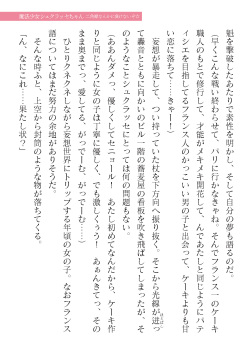 魔法少女シュクラッセちゃん
魁を撃破したあたりで素性を明かし、そして自分の夢も語るのだ。
「早くこんな戦い終わらせて、パリに行かなきゃね。そんでフランス一のケーキ
職人のもとで修行して、才能がメキメキ開花して、んであたしと同じようにパテ
ィシエを目指してるフランス人のかっこいい男の子と出会って、ケーキよりも甘
い恋に落ちて……！」
　妄想が暴走して、つい持っていた杖を下方向へ振り抜く。そこから光線が迸っ
て轟音とともに向かいのビル一階の蕎麦屋の看板を吹き飛ばしてしまったが、そ
のようなことシュクラッセにとっては何の問題もない。
「ああんダメっ、優しくしてセニョール！　あたし初めてなんだから、ケーキ作
りと同じようにあなたの舌では丁寧に優しく、でも激しくうう！　あぁんきて、その
まま奥まできっ、愛してる、がってむー！、がってむー……っ」
　ひとりクネクネしながら妄想世界にトリップする年頃の女の子。なおフランス
語についてはまだ努力の余地があるようだ。
　そんな時ふと、空から封筒のような物が落ちてくる。
「ん、なにこれ……果たし状？」